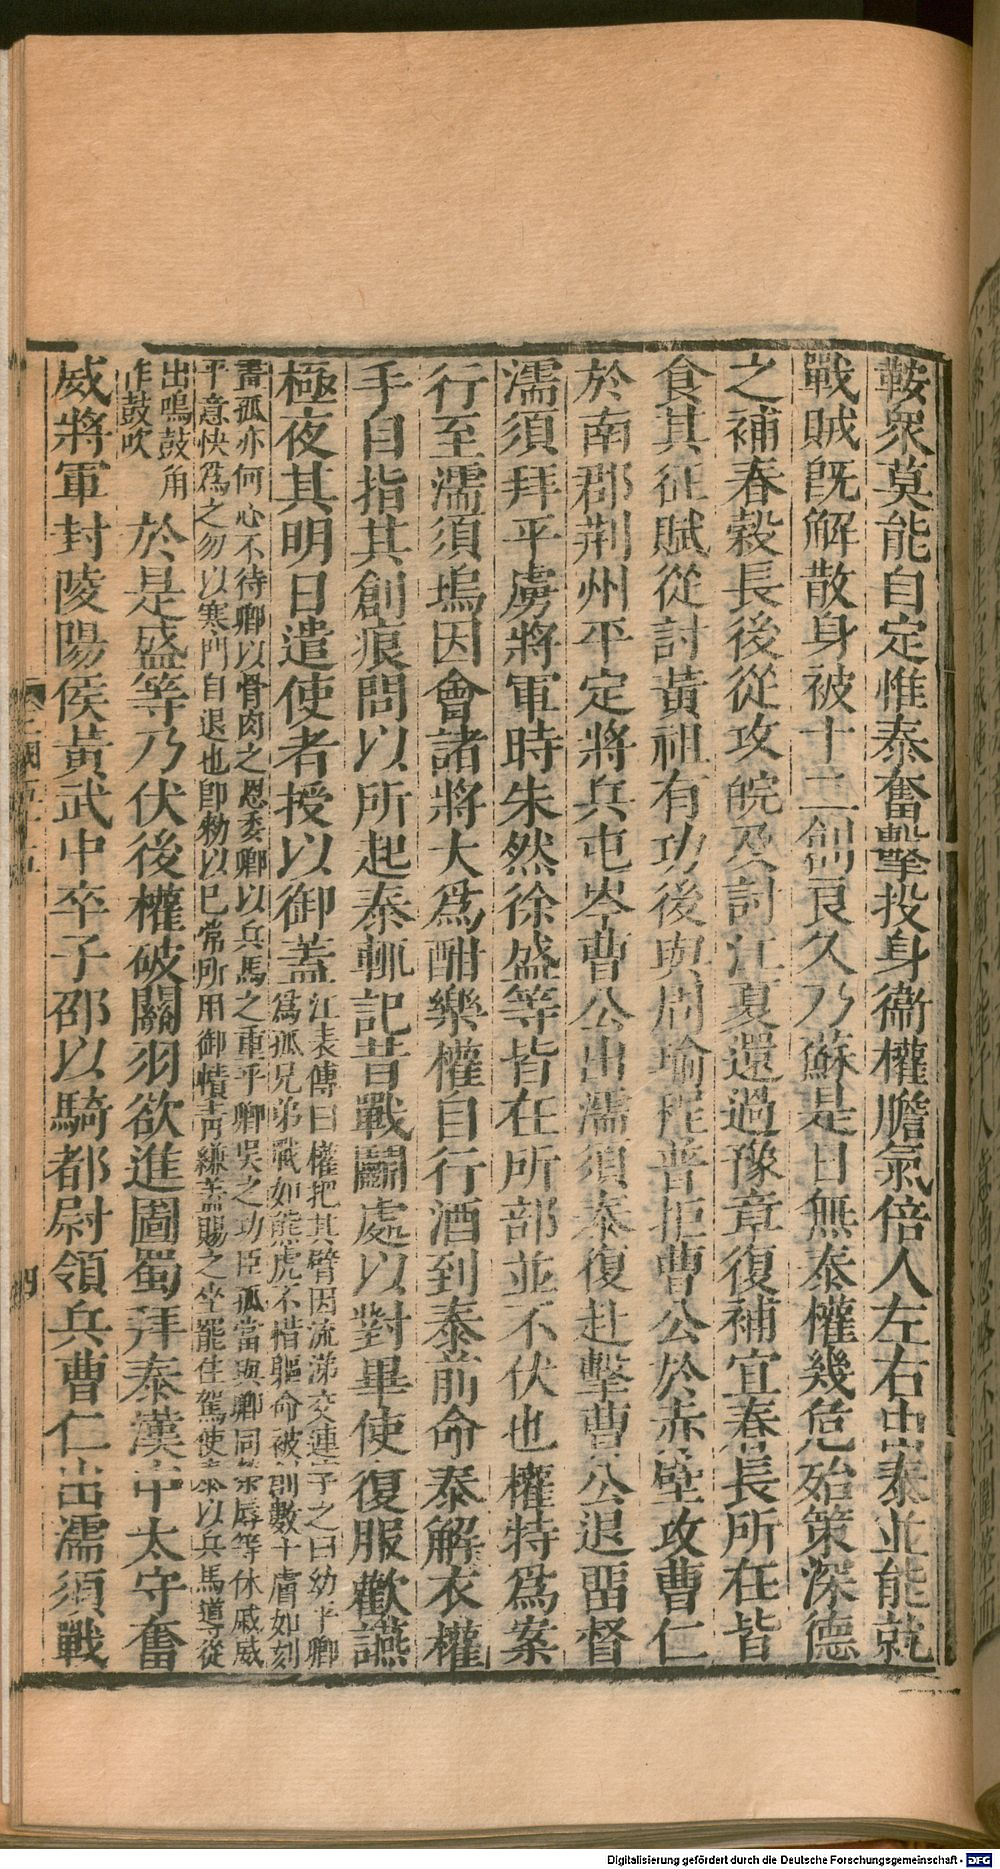 鞍眾莫能自定惟泰奮擊投身衞權膽氣倍人左右由泰並能就
戰賊旣解散身被十二創良久乃蘇是日無泰權幾危殆策深德
之補春穀長後從攻皖及討江夏還過豫章復補宜春長所在皆
食其征賦從討黃祖有功後與周瑜程普拒曹公於赤壁攻曹仁
於南郡荆州平定將兵屯岑曹公出濡須泰復赴擊曹公退畱督
濡須拜平虜將軍時朱然徐盛等皆在所部並不伏也權特爲案
行至濡須塢因會諸將大爲酣樂權自行酒到泰前命泰解衣權
手自指其創痕問以所起泰輒記昔戰鬭處以對畢使復服歡讌
極夜其明日遣使者授以御蓋
江表傳曰權把其臂因流涕交連字之曰幼平卿
爲孤兄弟戰如熊虎不惜軀命被創數十膚如刻
畫孤亦何心不待卿以骨肉之恩委卿以兵馬之重乎卿吳之功臣孤當與卿同榮辱等休戚威
平意快爲之勿以寒門自退也卽勑以巳常所用御幘靑縑蓋賜之坐罷住駕使泰以兵馬導從
出鳴鼓角
作鼓吹
於是盛等乃伏後權破關羽欲進圖蜀拜泰漢中太守奮
威將軍封陵陽侯黃武中卒子邵以騎都尉領兵曹仁出濡須戰
三國五十五
四
Digitalisierung gefördert durch die Deutsche Forschungsgemeinschaft - DFG